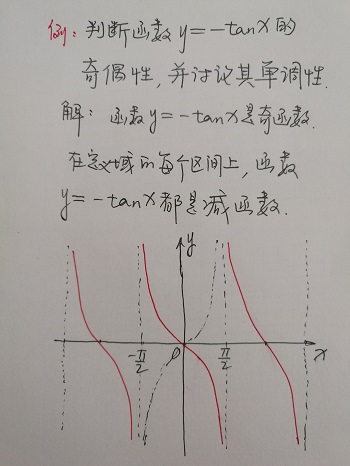 例：判断函数y=-tanx的
奇偶性，并讨论其单调性.
解：函数y=-tanx是奇函数.
在定义域的每个区间上，函数
y=-tanx都是减函数.
y
-π/2 0 π/2 x